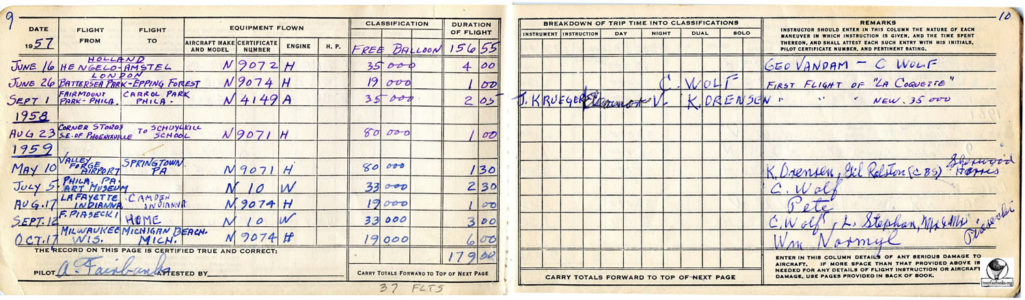 9
DATE
1957
FLIGHT FROM
FLIGHT TO
EQUIPMENT FLOWN
AIRCRAFT MAKE AND MODEL
CERTIFICATE NUMBER
ENGINE
H. P.
CLASSIFICATION
FREE BALLOON
DURATION OF FLIGHT
156 55
HOLLAND
JUNE 16 HENGELO-AMSTEL N9072 H 35 000 4 00
LONDON
JUNE 26 BATTERSEA PARK-EPPING FOREST N9074 H 19 000 1 00
SEPT 1 FAIRMOUNT PARK-PHILA. CARROL PARK PHILA. N4149 A 35 000 2 05
1958
AUG 23 CORNER S.E. OF PHOENIXVILLE TO SCHUYLKILL SCHOOL N9071 H 80 000 1 00
1959
MAY 10 VALLEY FORGE AIRPORT SPRINGTOWN PA N9071 H 80 000 1 30
JULY 5 PHILA. PA. ART MUSEUM N 10 W 33 000 2 30
AUG. 17 LAFAYETTE INDIANNA CAMDEN INDIANNA N9074 H 19 000 1 00
SEPT. 12 F. PIASECKI HOME N 10 W 33 000 3 00
OCT. 17 MILWAUKEE WIS. MICHIGAN BEACH MICH. N9074 H 19 000 6 00
THE RECORD ON THIS PAGE IS CERTIFIED TRUE AND CORRECT:
179 00
PILOT A. Fairbank ATTESTED BY
CARRY TOTALS FORWARD TO TOP OF NEXT PAGE
37 FLTS
10
BREAKDOWN OF TRIP TIME INTO CLASSIFICATIONS
INSTRUMENT
INSTRUCTION
DAY
NIGHT
DUAL
SOLO
REMARKS
INSTRUCTOR SHOULD ENTER IN THIS COLUMN THE NATURE OF EACH
MANEUVER IN WHICH INSTRUCTION IS GIVEN, AND THE TIME SPENT
THEREON, AND SHALL ATTEST EACH SUCH ENTRY WITH HIS INITIALS,
PILOT CERTIFICATE NUMBER, AND PERTINENT RATING.
GEO VANDAM - C WOLF
C. WOLF FIRST FLIGHT OF "LA COQUETTE"
J. KRUEGER Eleanor V. K. DRENSEN " " " NEW 35 000
K. Drensen, Gil Ralston (CBS) Sherwood Harris
C. Wolf
Pete
C. Wolf, L. Stephan, Mr & Mrs Piasecki
Wm Normyl
CARRY TOTALS FORWARD TO TOP OF NEXT PAGE
ENTER IN THIS COLUMN DETAILS OF ANY SERIOUS DAMAGE TO
AIRCRAFT. IF MORE SPACE THAN THAT PROVIDED ABOVE IS
NEEDED FOR ANY DETAILS OF FLIGHT INSTRUCTION OR AIRCRAFT
DAMAGE, USE PAGES PROVIDED IN BACK OF BOOK.